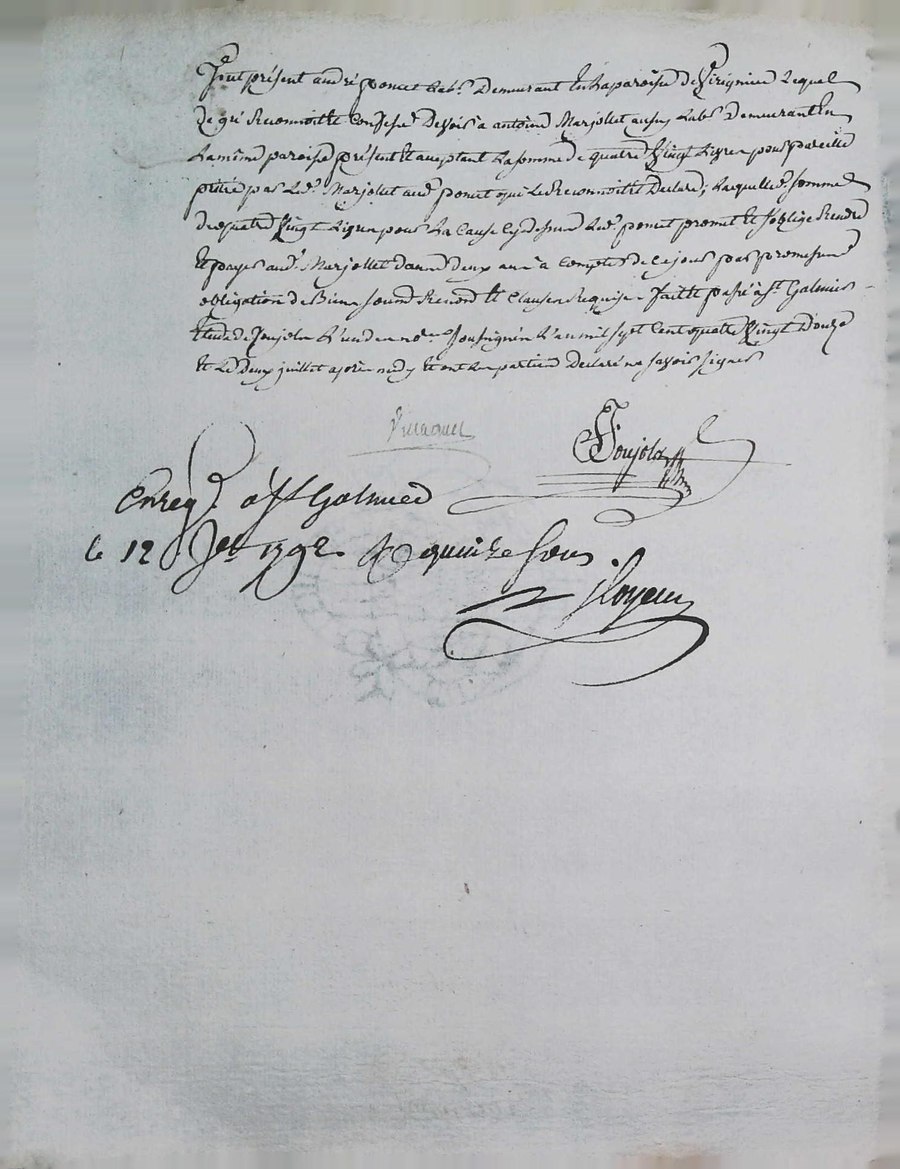 fut présent andré poncet lab.r Demeurant En La paroisse de Virignieu Lequel
de gré Reconnoit Et Confesse Devoir a antoine Marjollet aussy Lab.r Demeurant En
La même paroisse présent Et aceptant La somme de quatre Vingt Livres pour pareille
prété par Led. Marjollet aud. poncet qui Le Reconnoit Et Declare, Laquelle d. somme
de quatre Vingt Livres pour La Cause Cy dessus Led. poncet promet Et s'oblige Rendre
Et payer aud. Marjollet dans deux ans a Compter de Ce jour par promesse
obligation de Biens soumis Renon.d Et Clauses Requise. fait Et passé a St Galmier
Etude de Joujolon L'un des no.res soussignés L'an mil sept Cent quatre Vingt Douze
Et Le Deux juillet après midy Et ont Les parties Declaré ne savoir signer
Joujolon
Enreg.t a St Galmier
le 12 Jet 1792 R quinze sous